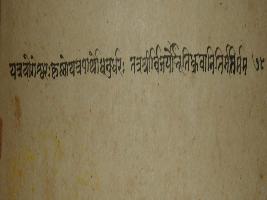 यत्रयोगेश्वरःकृष्णोयत्रपार्थोधनुर्धरः तत्रश्रीर्विजयोभूतिर्ध्रुवानीतिर्मतिर्मम ७८